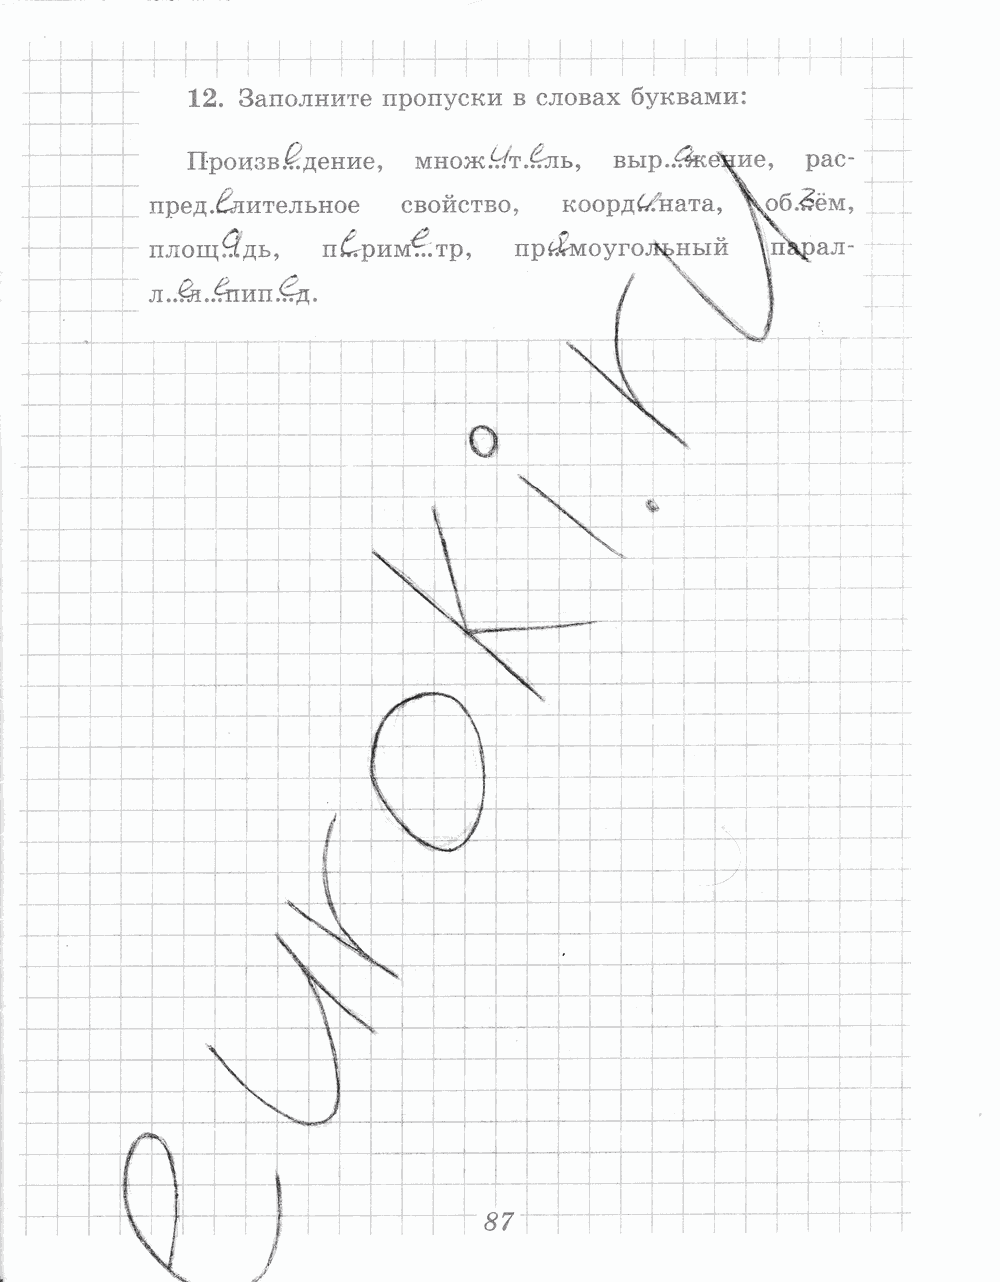 12. Заполните пропуски в словах буквами:
Произв е дение, множ и т е ль, выр а жение, рас-
пред е лительное свойство, коорд и ната, об ъ ём,
площ а дь, п е рим е тр, пр я моугольный парал-
л е л е пип е д.
euroki.ru
87